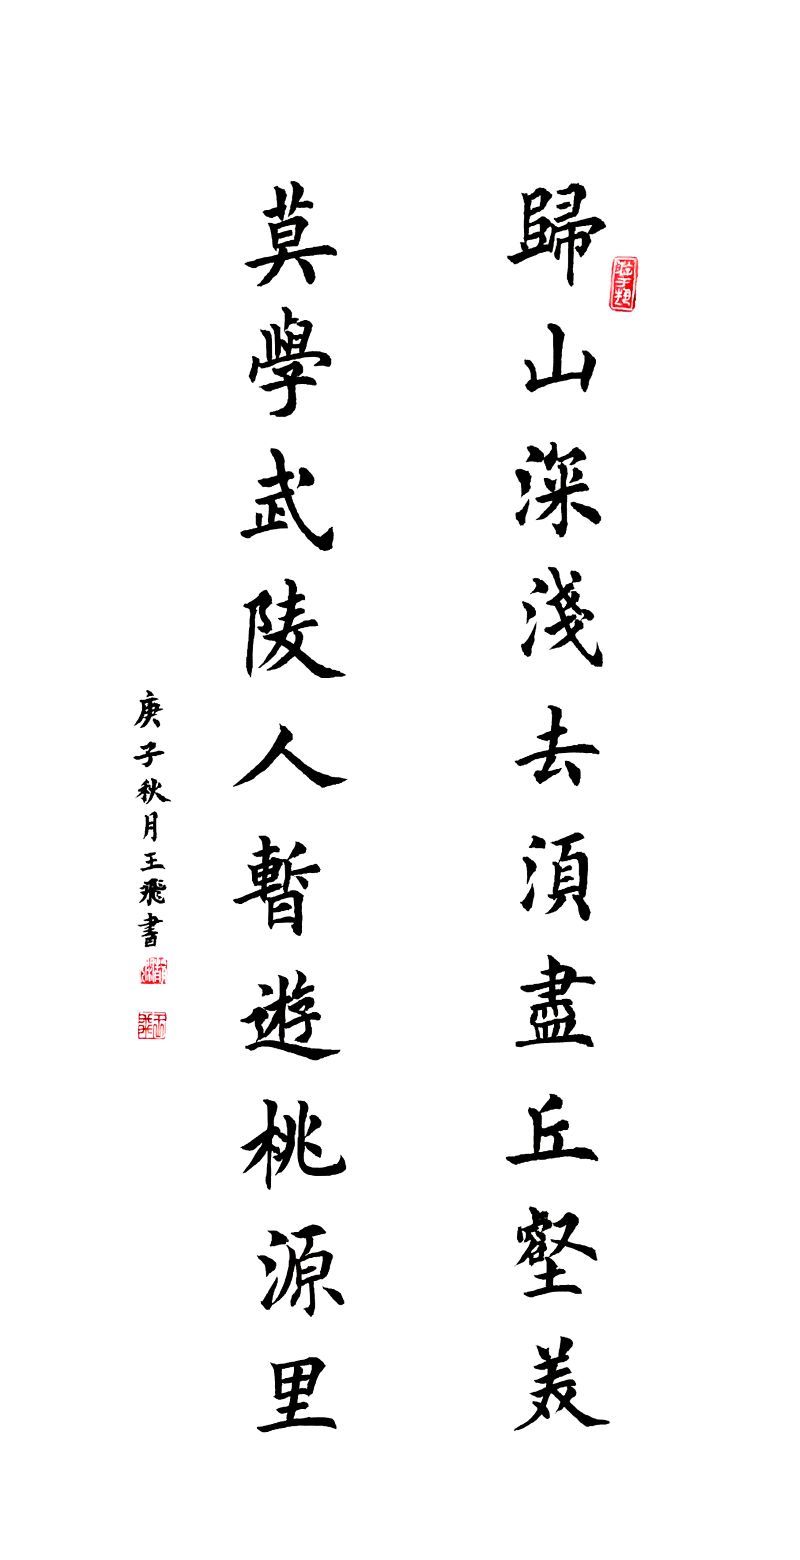 歸山深淺去須盡丘壑美
莫學武陵人暫遊桃源里
庚子秋月王飛書